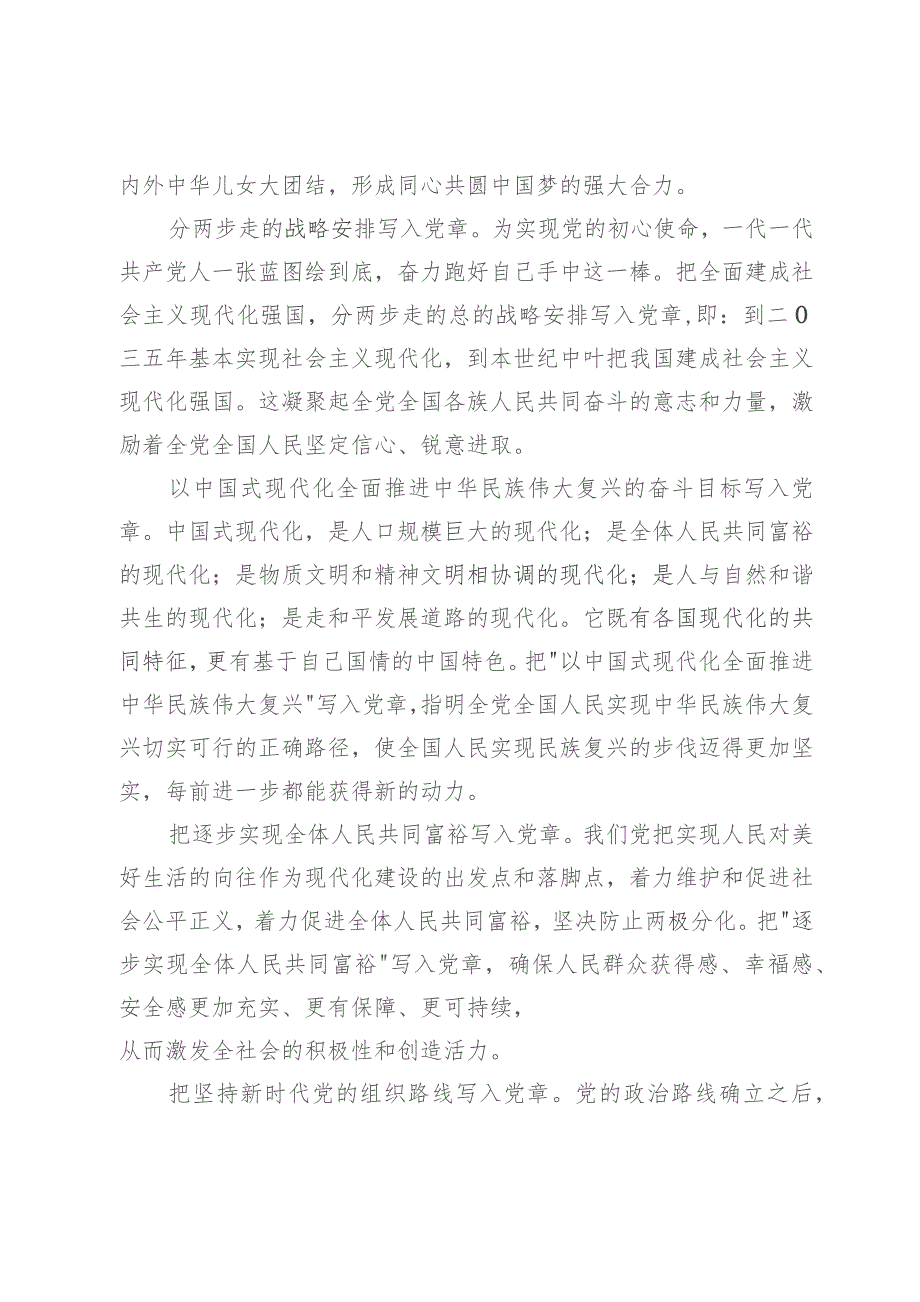 内外中华儿女大团结，形成同心共圆中国梦的强大合力。
分两步走的战略安排写入党章。为实现党的初心使命，一代一代
共产党人一张蓝图绘到底，奋力跑好自己手中这一棒。把全面建成社
会主义现代化强国，分两步走的总的战略安排写入党章,即：到二0
三五年基本实现社会主义现代化，到本世纪中叶把我国建成社会主义
现代化强国。这凝聚起全党全国各族人民共同奋斗的意志和力量，激
励着全党全国人民坚定信心、锐意进取。
以中国式现代化全面推进中华民族伟大复兴的奋斗目标写入党
章。中国式现代化，是人口规模巨大的现代化；是全体人民共同富裕
的现代化；是物质文明和精神文明相协调的现代化；是人与自然和谐
共生的现代化；是走和平发展道路的现代化。它既有各国现代化的共
同特征，更有基于自己国情的中国特色。把"以中国式现代化全面推进
中华民族伟大复兴"写入党章,指明全党全国人民实现中华民族伟大复
兴切实可行的正确路径，使全国人民实现民族复兴的步伐迈得更加坚
实，每前进一步都能获得新的动力。
把逐步实现全体人民共同富裕写入党章。我们党把实现人民对美
好生活的向往作为现代化建设的出发点和落脚点，着力维护和促进社
会公平正义，着力促进全体人民共同富裕，坚决防止两极分化。把"逐
步实现全体人民共同富裕"写入党章，确保人民群众获得感、幸福感、
安全感更加充实、更有保障、更可持续，
从而激发全社会的积极性和创造活力。
把坚持新时代党的组织路线写入党章。党的政治路线确立之后，